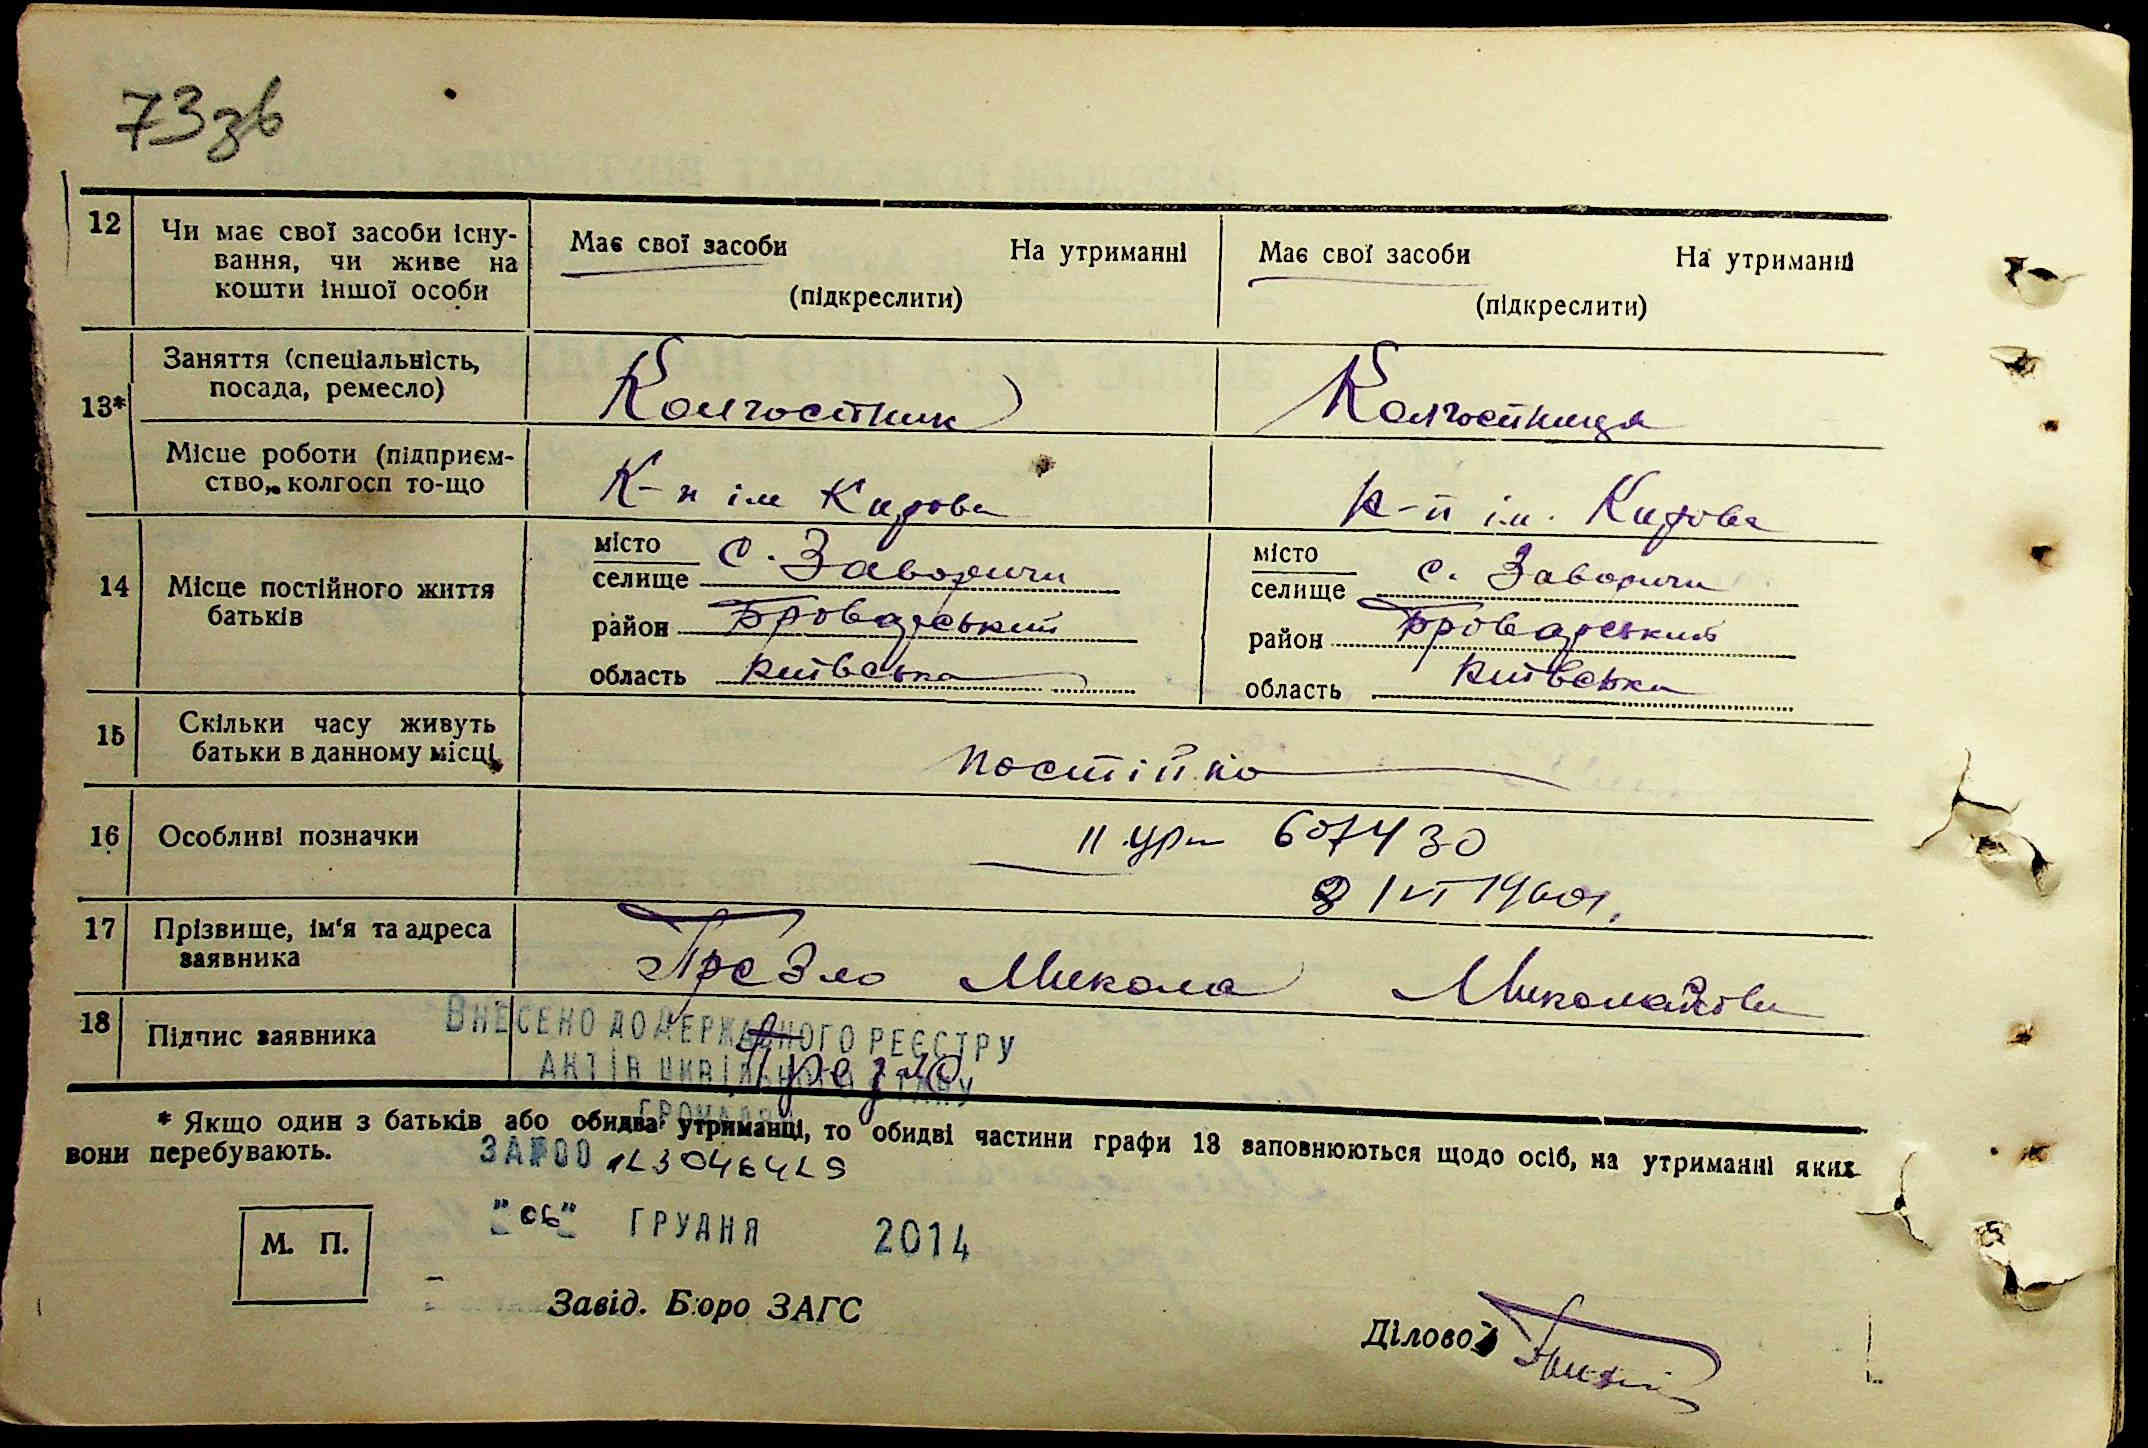 73зв
12 Чи має свої засоби існу-
вання, чи живе на
кошти іншої особи
Має свої засоби На утриманні
(підкреслити)
Має свої засоби На утриманні
(підкреслити)
13* Заняття (спеціальність,
посада, ремесло)
Колгостник
Колгостниця
Місце роботи (підприєм-
ство, колгосп то-що
К-п ім Кирова
К-п ім. Кирова
14 Місце постійного життя
батьків
місто
селище с. Заворичи
район Броварський
область Київська
місто
селище с. Заворичи
район Броварський
область Київська
15 Скільки часу живуть
батьки в данному місці
постійно
16 Особливі позначки
607430
17 Прізвище, ім'я та адреса
заявника
Презло Микола
18 Підпис заявника
Презло
ВНЕСЕНО ДО ДЕРЖАВНОГО РЕЄСТРУ
АКТІВ ЦИВІЛЬНОГО СТАНУ
ГРОМАДЯН
* Якщо один з батьків або обидва утриманці, то обидві частини графи 13 заповнюються щодо осіб, на утриманні яких
вони перебувають.
ЗА №00
"06" ГРУДНЯ 2014
М. П.
Завід. Бюро ЗАГС
Діловод